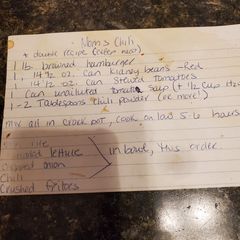 Nom's Chili
* double recipe (except meat)
1 lb. browned hamburger
1, 14 1/2 oz. can kidney beans - Red
1, 14 1/2 oz. can Stewed Tomatoes
1 Can undiluted tomato soup (+ 1/2 cup H2O
1-2 Tablespoons chili powder (or more!)
mix all in crock pot, cook on low 5-6 hours
rice
lettuce
onion
Chili
Crushed fritos
in bowl, this order